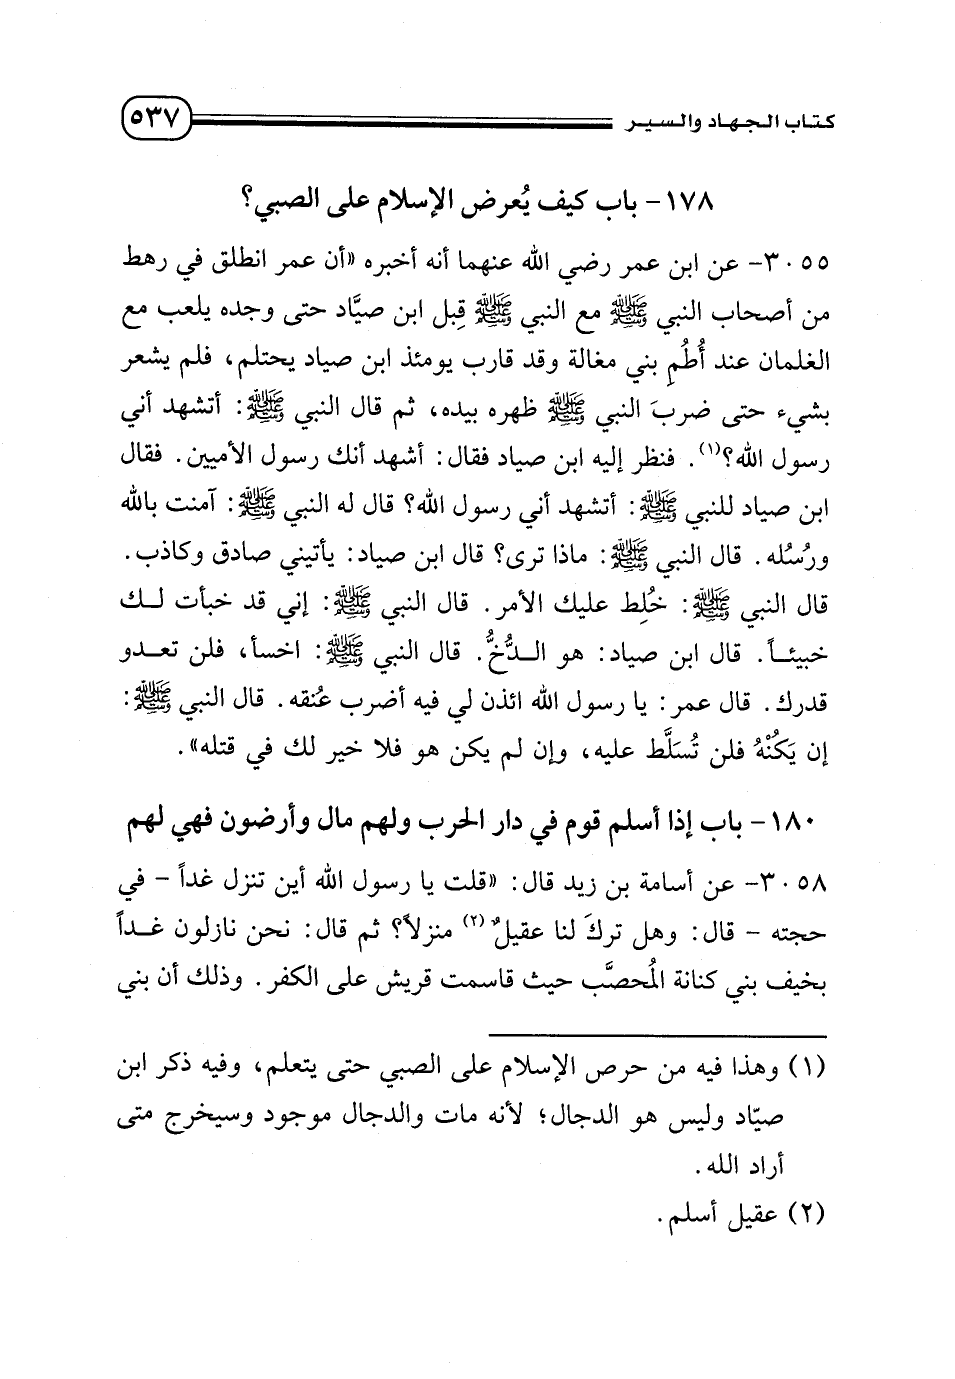 كتاب الجهاد والسير ٥٣٧
١٧٨- باب كيف يُعرض الإسلام على الصبي؟
٣٠٥٥- عن ابن عمر رضي الله عنهما أنه أخبره «أن عمر انطلق في رهط
من أصحاب النبي ﷺ مع النبي ﷺ قِبل ابن صيَّاد حتى وجده يلعب مع
الغلمان عند أُطُمِ بني مغالة وقد قارب يومئذ ابن صياد يحتلم، فلم يشعر
بشيء حتى ضربَ النبي ﷺ ظهره بيده، ثم قال النبي ﷺ: أتشهد أني
رسول الله؟(١). فنظر إليه ابن صياد فقال: أشهد أنك رسول الأميين. فقال
ابن صياد للنبي ﷺ: أتشهد أني رسول الله؟ قال له النبي ﷺ: آمنت بالله
ورُسُله. قال النبي ﷺ: ماذا ترى؟ قال ابن صياد: يأتيني صادق وكاذب.
قال النبي ﷺ: خُلِط عليك الأمر. قال النبي ﷺ: إني قد خبأت لـك
خبيئـاً. قال ابن صياد: هو الـدُّخُّ. قال النبي ﷺ: اخسأ، فلن تعـدو
قدرك. قال عمر: يا رسول الله ائذن لي فيه أضرب عُنقه. قال النبي ﷺ:
إن يَكُنْهُ فلن تُسَلَّط عليه، وإن لم يكن هو فلا خير لك في قتله».
١٨٠- باب إذا أسلم قوم في دار الحرب ولهم مال وأرضون فهي لهم
٣٠٥٨- عن أسامة بن زيد قال: «قلت يا رسول الله أين تنزل غداً - في
حجته - قال: وهل تركَ لنا عقيلٌ(٢) منزلاً؟ ثم قال: نحن نازلون غـداً
بخيف بني كنانة المُحصَّب حيث قاسمت قريش على الكفر. وذلك أن بني
(١) وهذا فيه من حرص الإسلام على الصبي حتى يتعلم، وفيه ذكر ابن
صيّاد وليس هو الدجال؛ لأنه مات والدجال موجود وسيخرج متى
أراد الله.
(٢) عقيل أسلم.